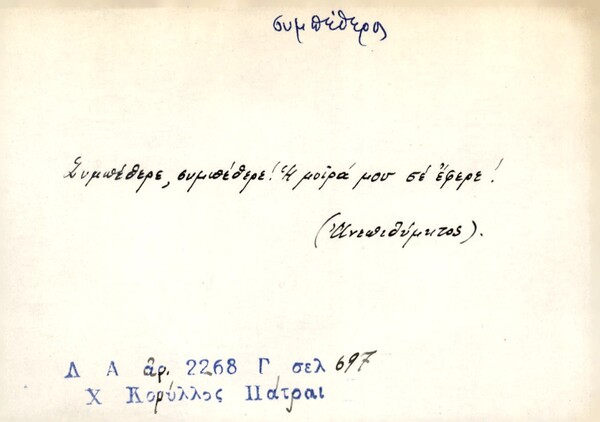 συμπέθερος
Συμπέθερε, συμπέθερε! Ἡ μοῖρά μου σέ ἔφερε!
(Ἀνεπιθύμητος).
Λ Α ἀρ. 2268 Γ σελ 697
Χ Κορύλλος Πάτραι